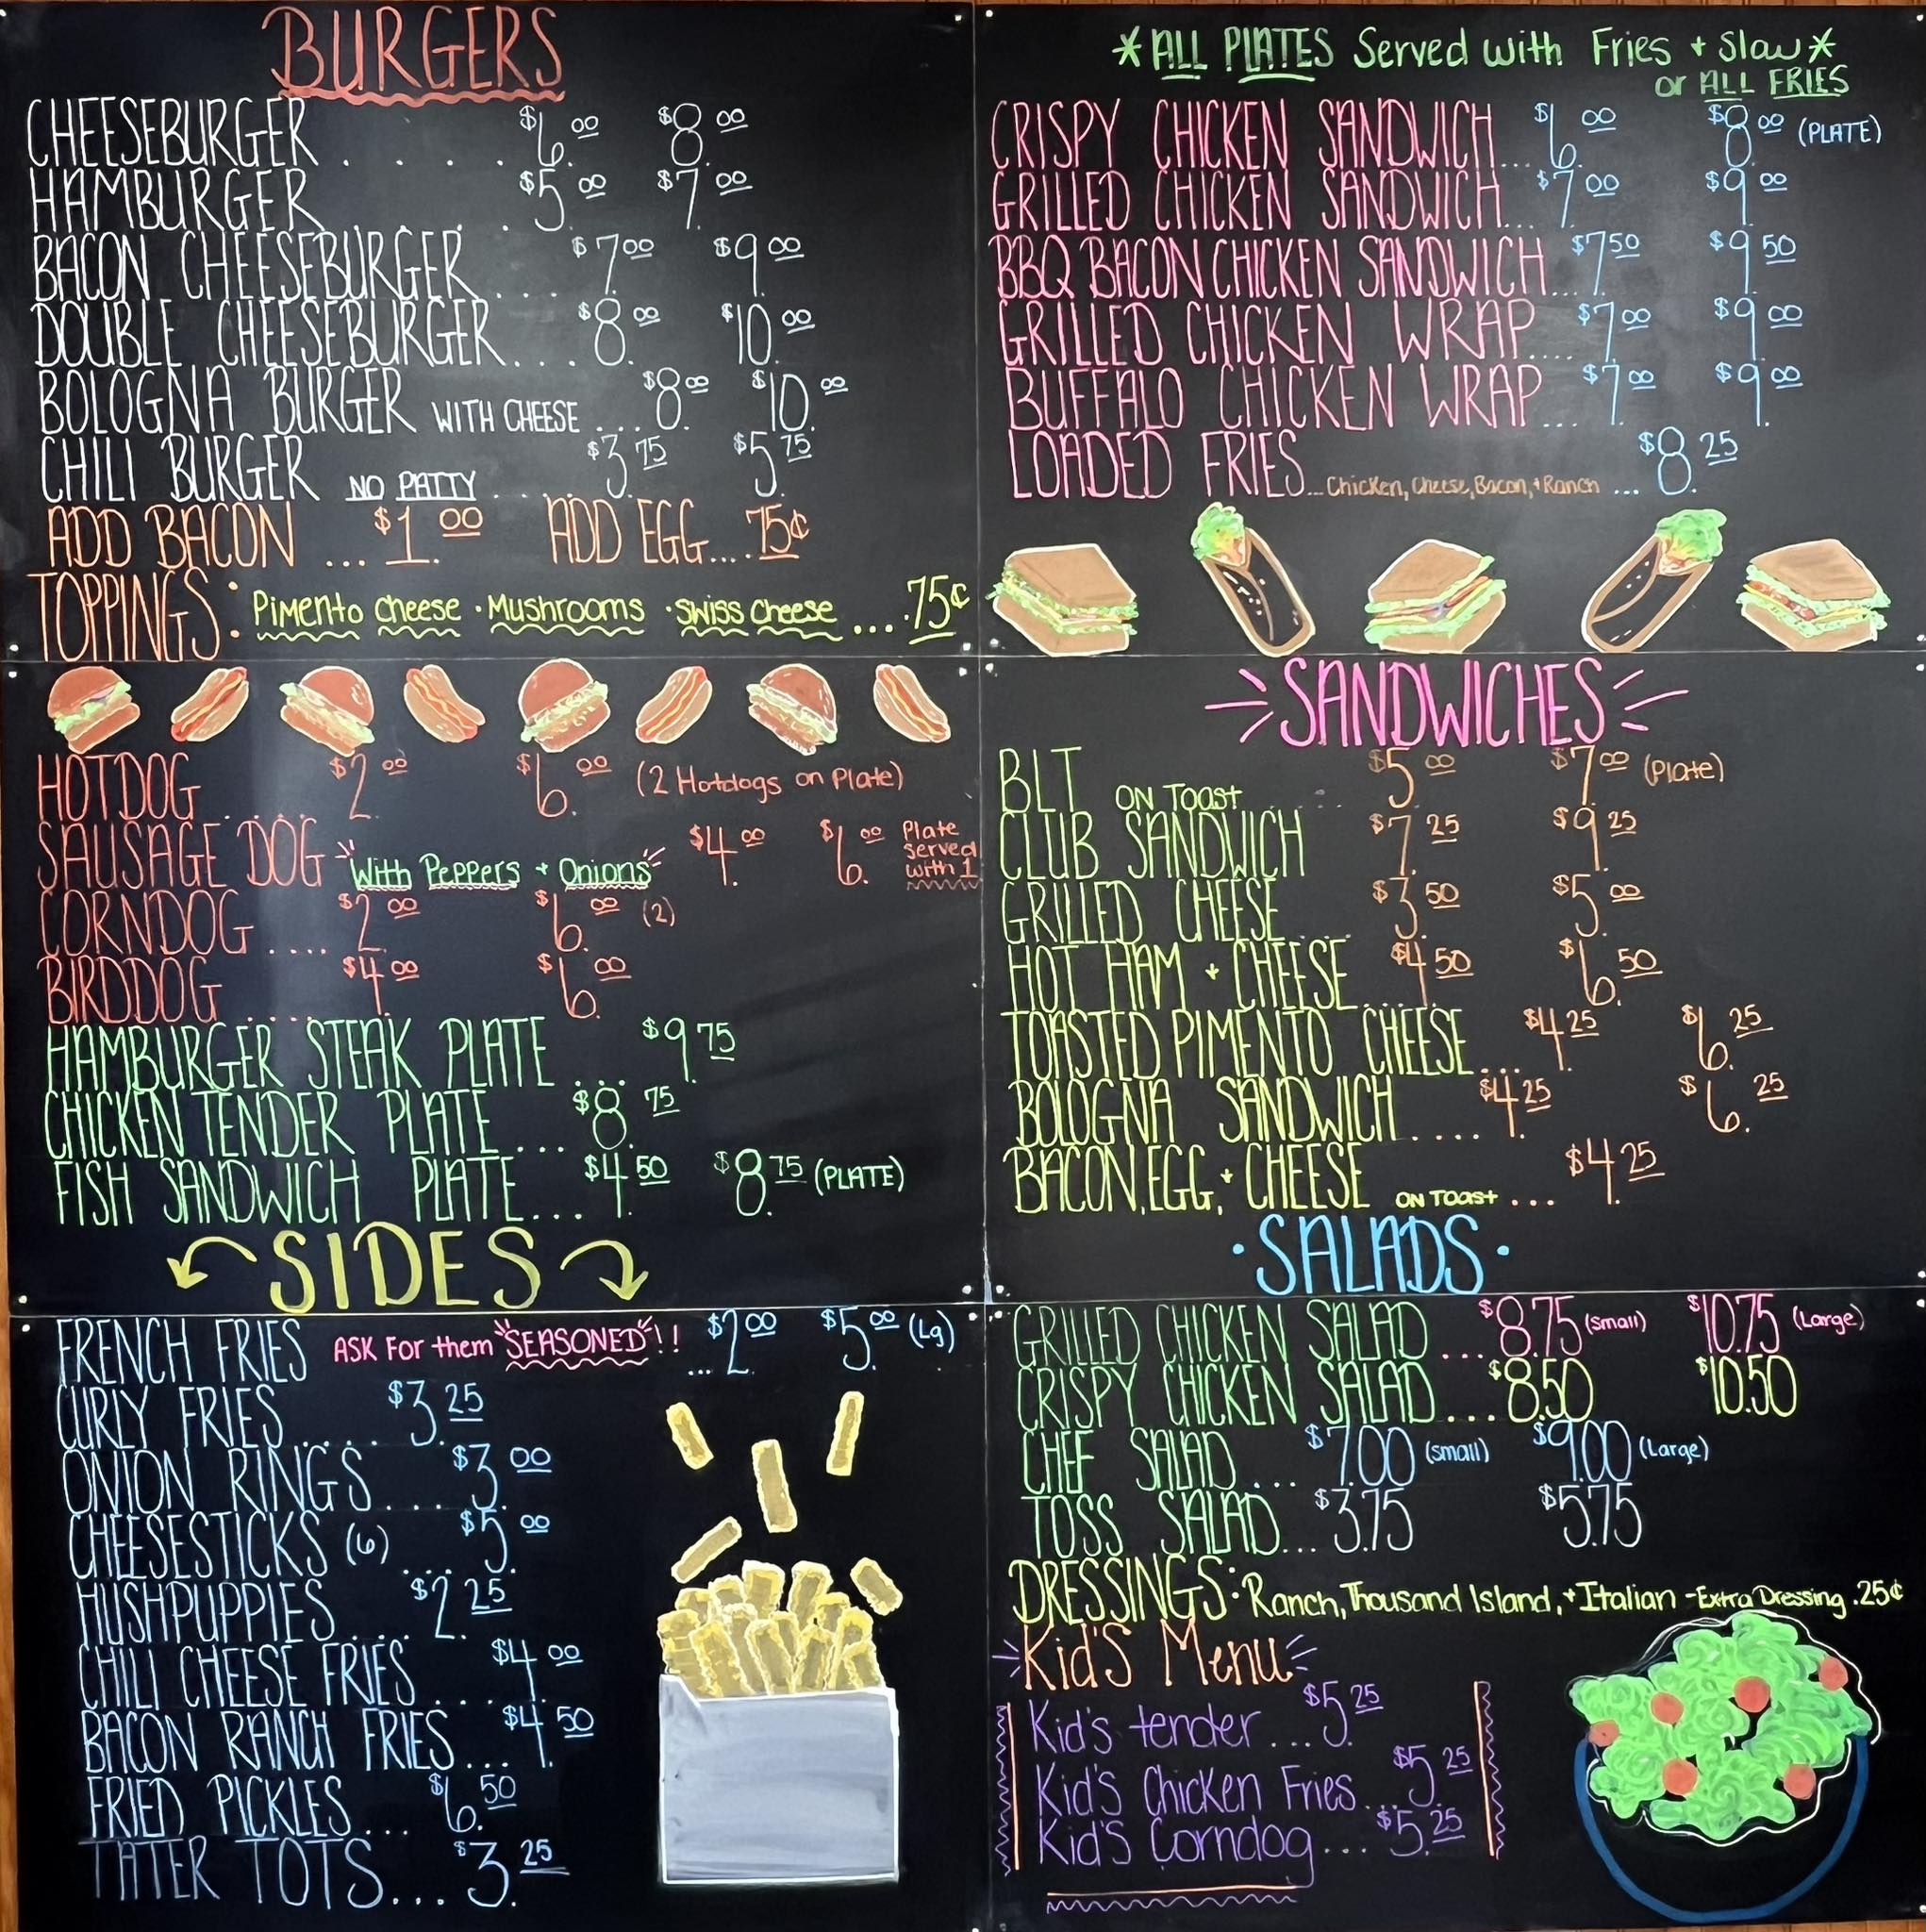 BURGERS
CHEESEBURGER . . . . $6.00 $8.00
HAMBURGER . . . . . $5.00 $7.00
BACON CHEESEBURGER . . . . $7.00 $9.00
DOUBLE CHEESEBURGER . . . $8.00 $10.00
BOLOGNA BURGER WITH CHEESE . . . $8.00 $10.00
CHILI BURGER NO PATTY . . . . $3.75 $5.75
ADD BACON ... $1.00 ADD EGG.... 75¢
TOPPINGS: Pimento Cheese · Mushrooms · Swiss Cheese .... .75¢
HOTDOG . . . . $2.00 $6.00 (2 Hotdogs on Plate)
SAUSAGE DOG "With Peppers + Onions" $4.00 $6.00 Plate served with 1
CORNDOG .... $2.00 $6.00 (2)
BIRDDOG .... $4.00 $6.00
HAMBURGER STEAK PLATE ... $9.75
CHICKEN TENDER PLATE ... $8.75
FISH SANDWICH PLATE... $4.50 $8.75 (PLATE)
SIDES
FRENCH FRIES ASK For them "SEASONED"!! ... $2.00 $5.00 (Lg)
CURLY FRIES .... $3.25
ONION RINGS .... $3.00
CHEESESTICKS (6) .... $5.00
HUSHPUPPIES .... $2.25
CHILI CHEESE FRIES .... $4.00
BACON RANCH FRIES ... $4.50
FRIED PICKLES ... $6.50
TATER TOTS... $3.25
*ALL PLATES Served with Fries + Slaw*
or ALL FRIES
CRISPY CHICKEN SANDWICH... $6.00 $8.00 (PLATE)
GRILLED CHICKEN SANDWICH... $7.00 $9.00
BBQ BACON CHICKEN SANDWICH... $7.50 $9.50
GRILLED CHICKEN WRAP.... $7.00 $9.00
BUFFALO CHICKEN WRAP ... $7.00 $9.00
LOADED FRIES... Chicken, Cheese, Bacon, + Ranch ... $8.25
SANDWICHES
BLT ON Toast ... $5.00 $7.00 (Plate)
CLUB SANDWICH $7.25 $9.25
GRILLED CHEESE $3.50 $5.00
HOT HAM + CHEESE .... $4.50 $6.50
TOASTED PIMENTO CHEESE ... $4.25 $6.25
BOLOGNA SANDWICH .... $4.25 $6.25
BACON, EGG, + CHEESE ON Toast ... $4.25
·SALADS·
GRILLED CHICKEN SALAD ... $8.75 (small) $10.75 (Large)
CRISPY CHICKEN SALAD ... $8.50 $10.50
CHEF SALAD ... $7.00 (small) $9.00 (Large)
TOSS SALAD... $3.75 $5.75
DRESSINGS: Ranch, Thousand Island, + Italian - Extra Dressing .25¢
Kid'S Menu
Kid's tender ... $5.25
Kid's Chicken Fries... $5.25
Kid's Corndog ... $5.25